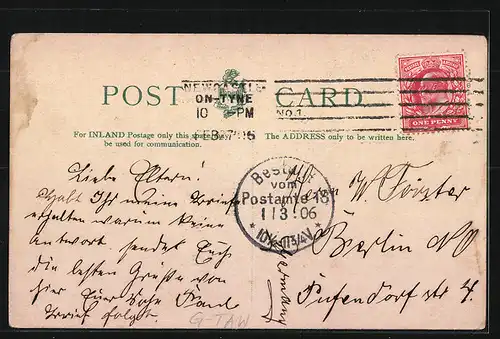 POST CARD
NEWCASTLE
ON-TYNE
10 PM
FEB 27 06
No.1
ONE PENNY
For INLAND Postage only this space may
be used for communication.
The ADDRESS only to be written here.
Liebe Eltern!
Habt Ihr meine Briefe
erhalten warum keine
antwort. sendet Euch
die besten Grüße von
hier Euer Sohn Paul
Brief folgt.
Bestellt
vom
Postamte 18
1 3 06
W. Förster
Berlin NO
Pufendorf str 4.
Germany
G-TAW